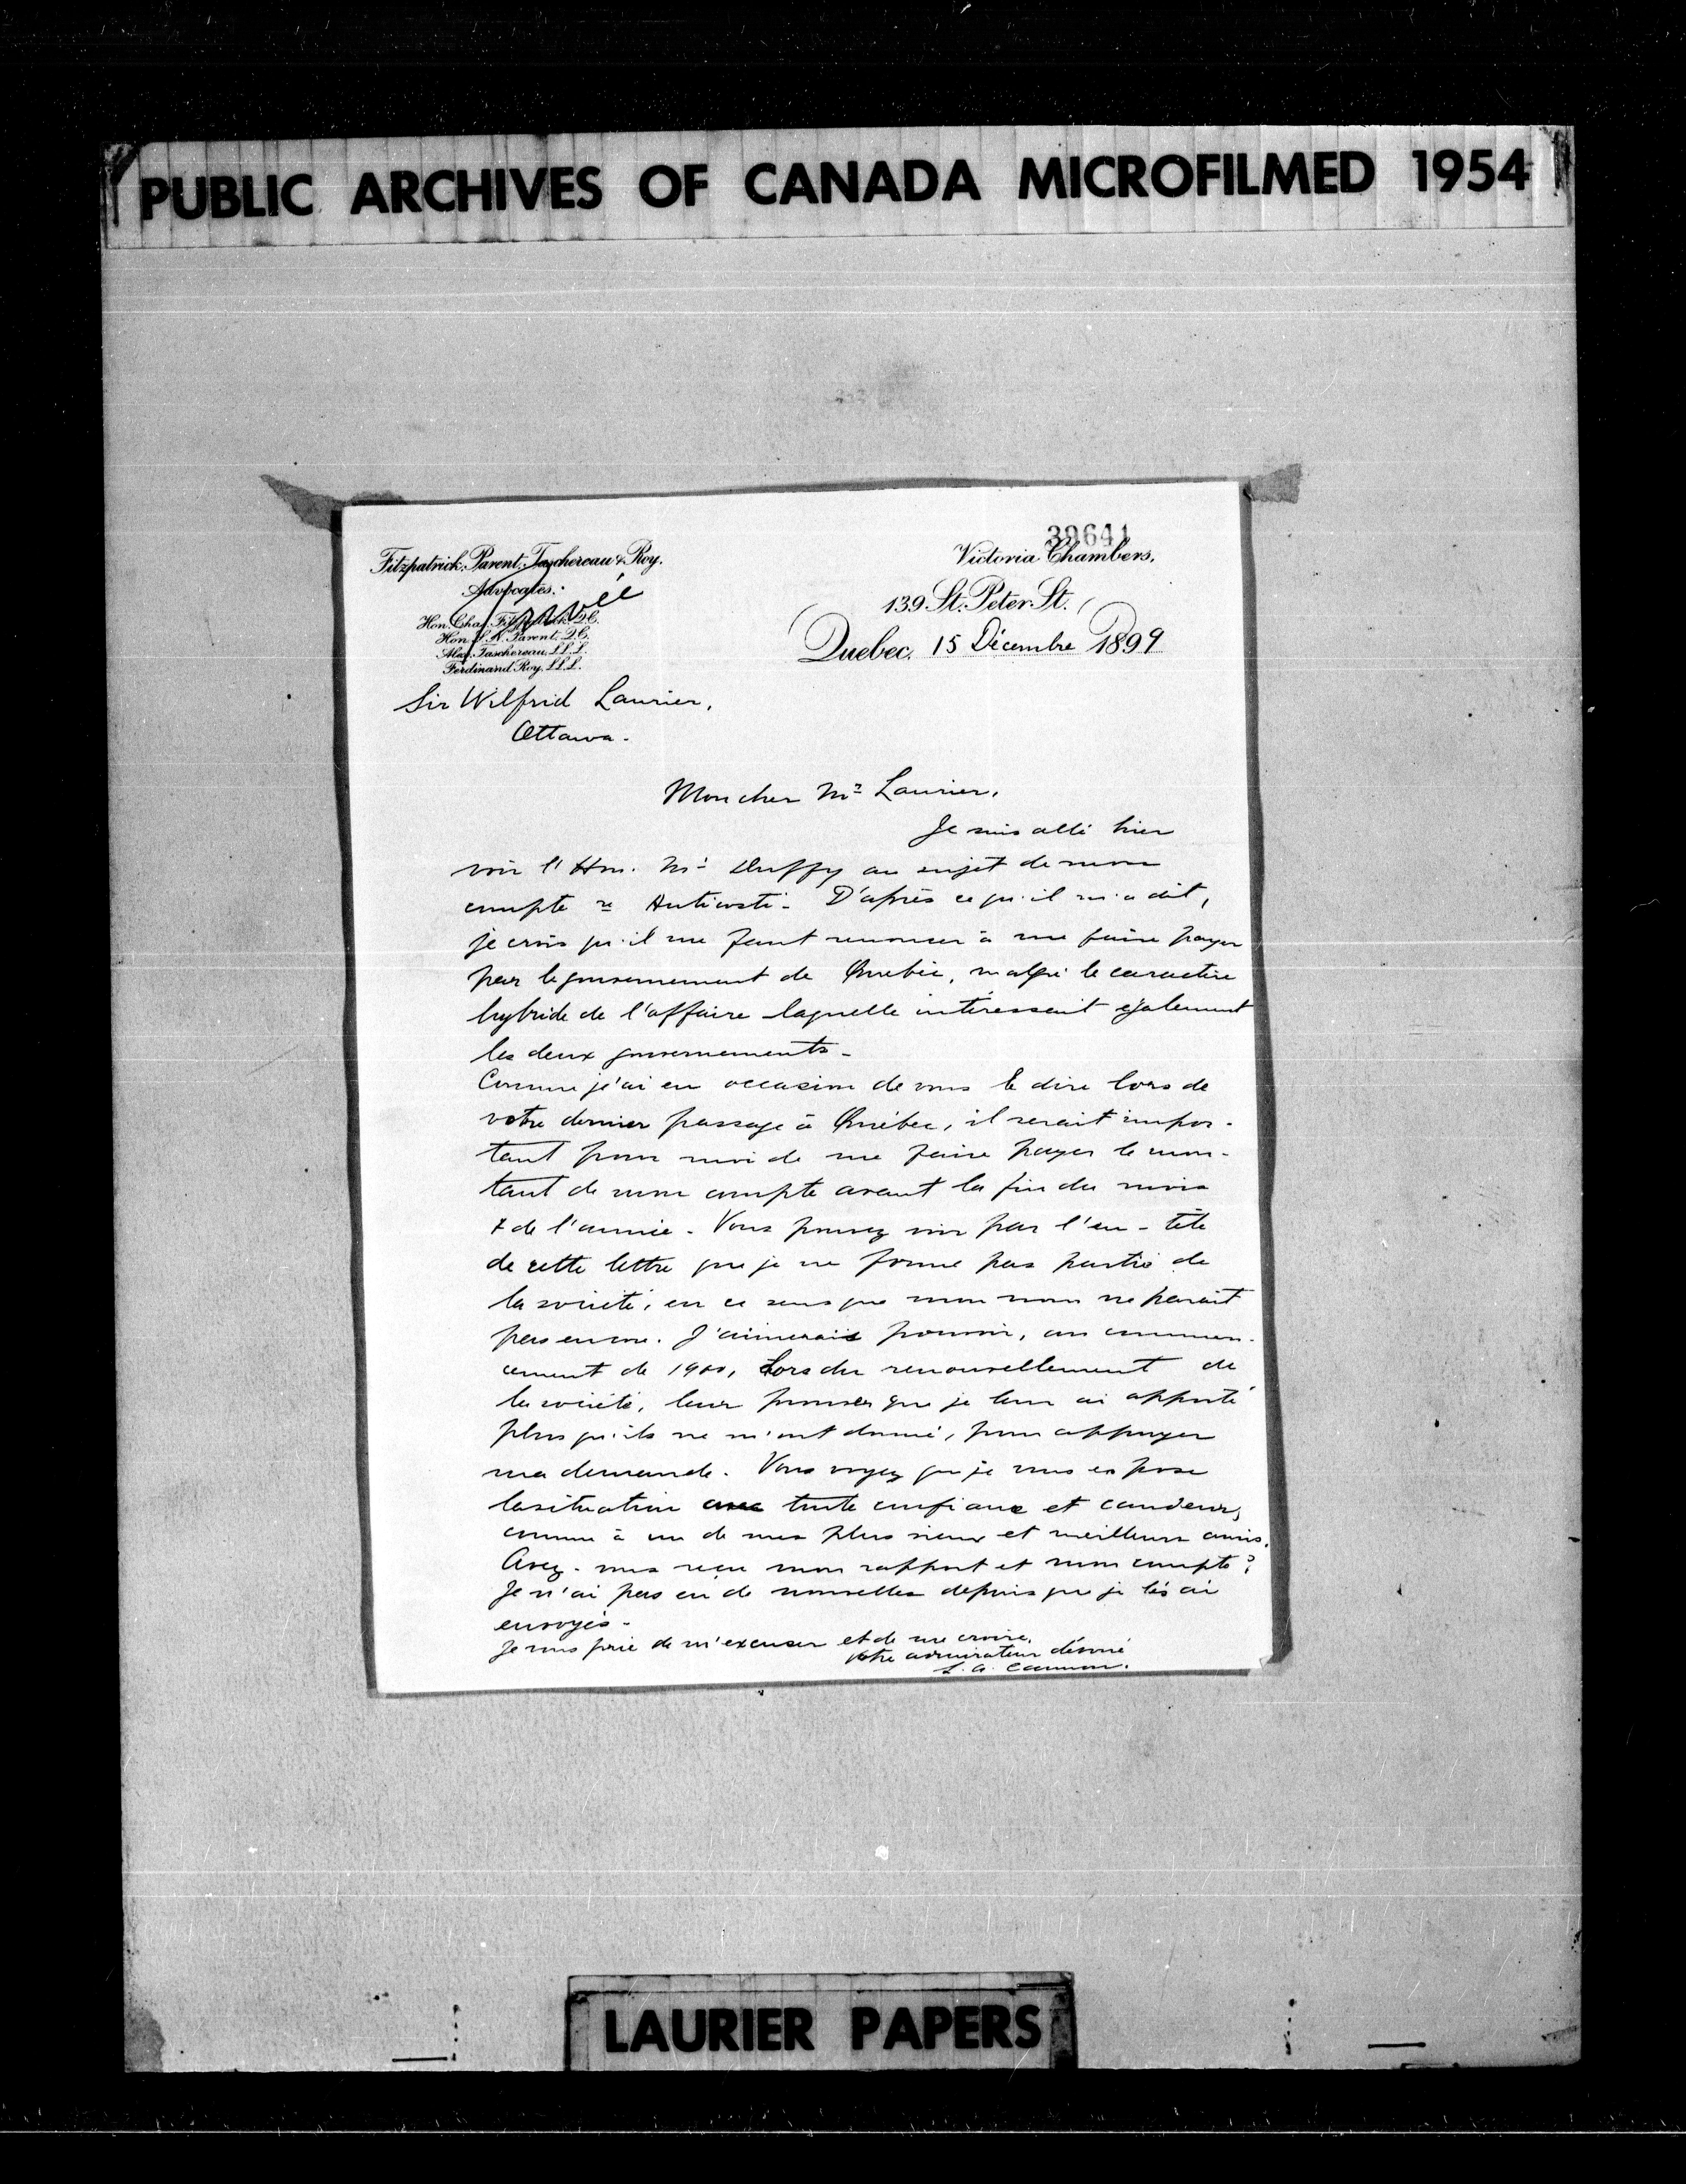 PUBLIC ARCHIVES OF CANADA MICROFILMED 1954
39641
Fitzpatrick, Parent, Taschereau & Roy.
Advocates.
Privée
Hon. Chas. Fitzpatrick. Q.C.
Hon. S. N. Parent. Q.C.
Alex. Taschereau, LL.L.
Ferdinand Roy, LL.L.
Victoria Chambers,
139 St. Peter St.
Quebec, 15 Décembre 1899
Sir Wilfrid Laurier,
Ottawa.
Mon cher Mr Laurier,
Je suis allé hier
voir l'Hon. Mr Duffy au sujet de mon
compte re Anticosti. D'après ce qu'il m'a dit,
je crois qu'il me faut renoncer à me faire payer
par le gouvernement de Québec, malgré le caractère
hybride de l'affaire laquelle intéressait également
les deux gouvernements.
Comme j'ai eu occasion de vous le dire lors de
votre dernier passage à Québec, il serait impor-
tant pour moi de me faire payer le mon-
tant de mon compte avant la fin du mois
& de l'année. Vous pouvez voir par l'en-tête
de cette lettre que je ne forme pas partie de
la société, en ce sens que mon nom ne parait
pas encore. J'aimerais pouvoir, au commen-
cement de 1900, lors du renouvellement de
la société, leur prouver que je leur ai apporté
plus qu'ils ne m'ont donné, pour appuyer
ma demande. Vous voyez que je vous expose
la situation avec toute confiance et candeur,
comme à un de mes plus vieux et meilleurs amis.
Avez-vous reçu mon rapport et mon compte?
Je n'ai pas eu de nouvelles depuis que je les ai
envoyés.
Je vous prie de m'excuser et de me croire,
Votre admirateur dévoué
L. A. Cannon.
LAURIER PAPERS